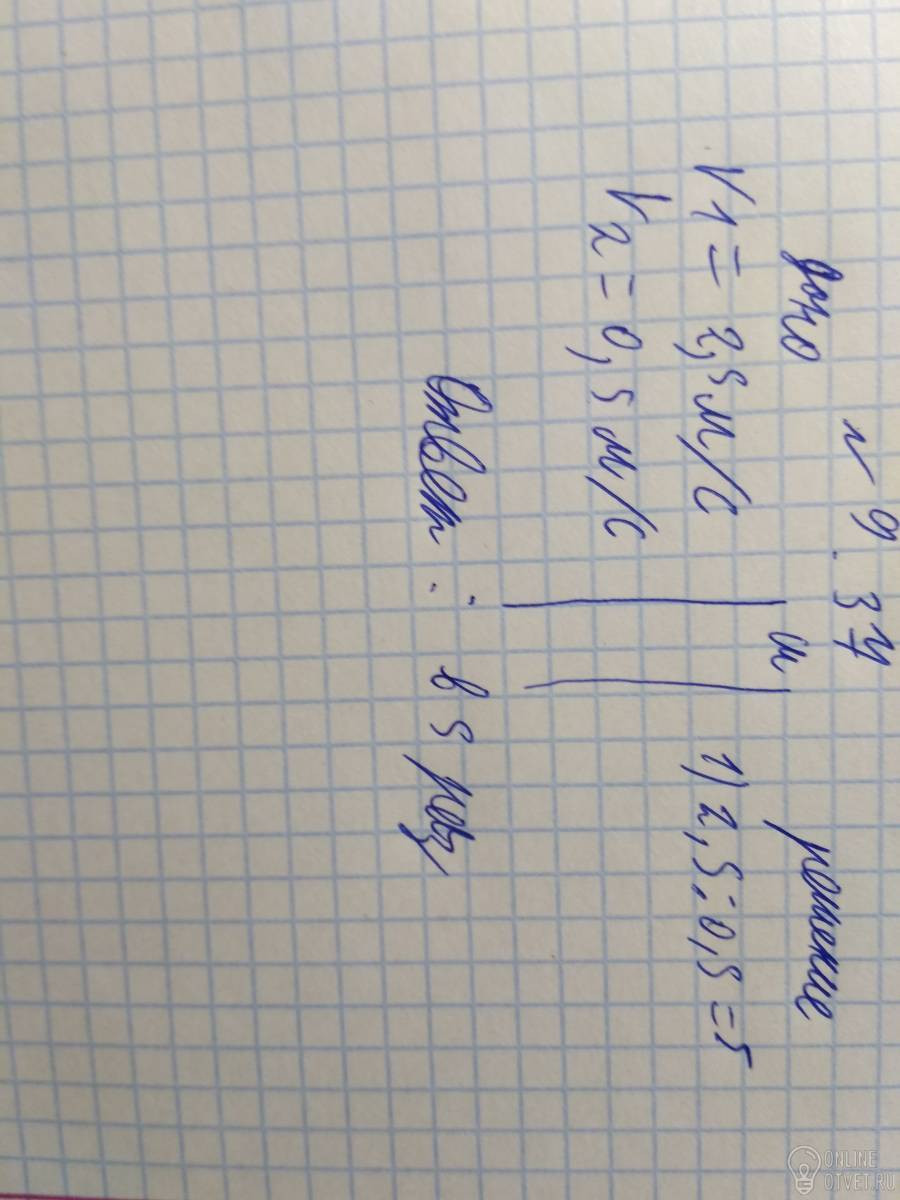 № 9.34
Дано
и
решение
V1 = 2,5 м/с
1) 2,5:0,5=5
V2 = 0,5 м/с
Ответ: в 5 раз
ONLINE
OTVET.RU